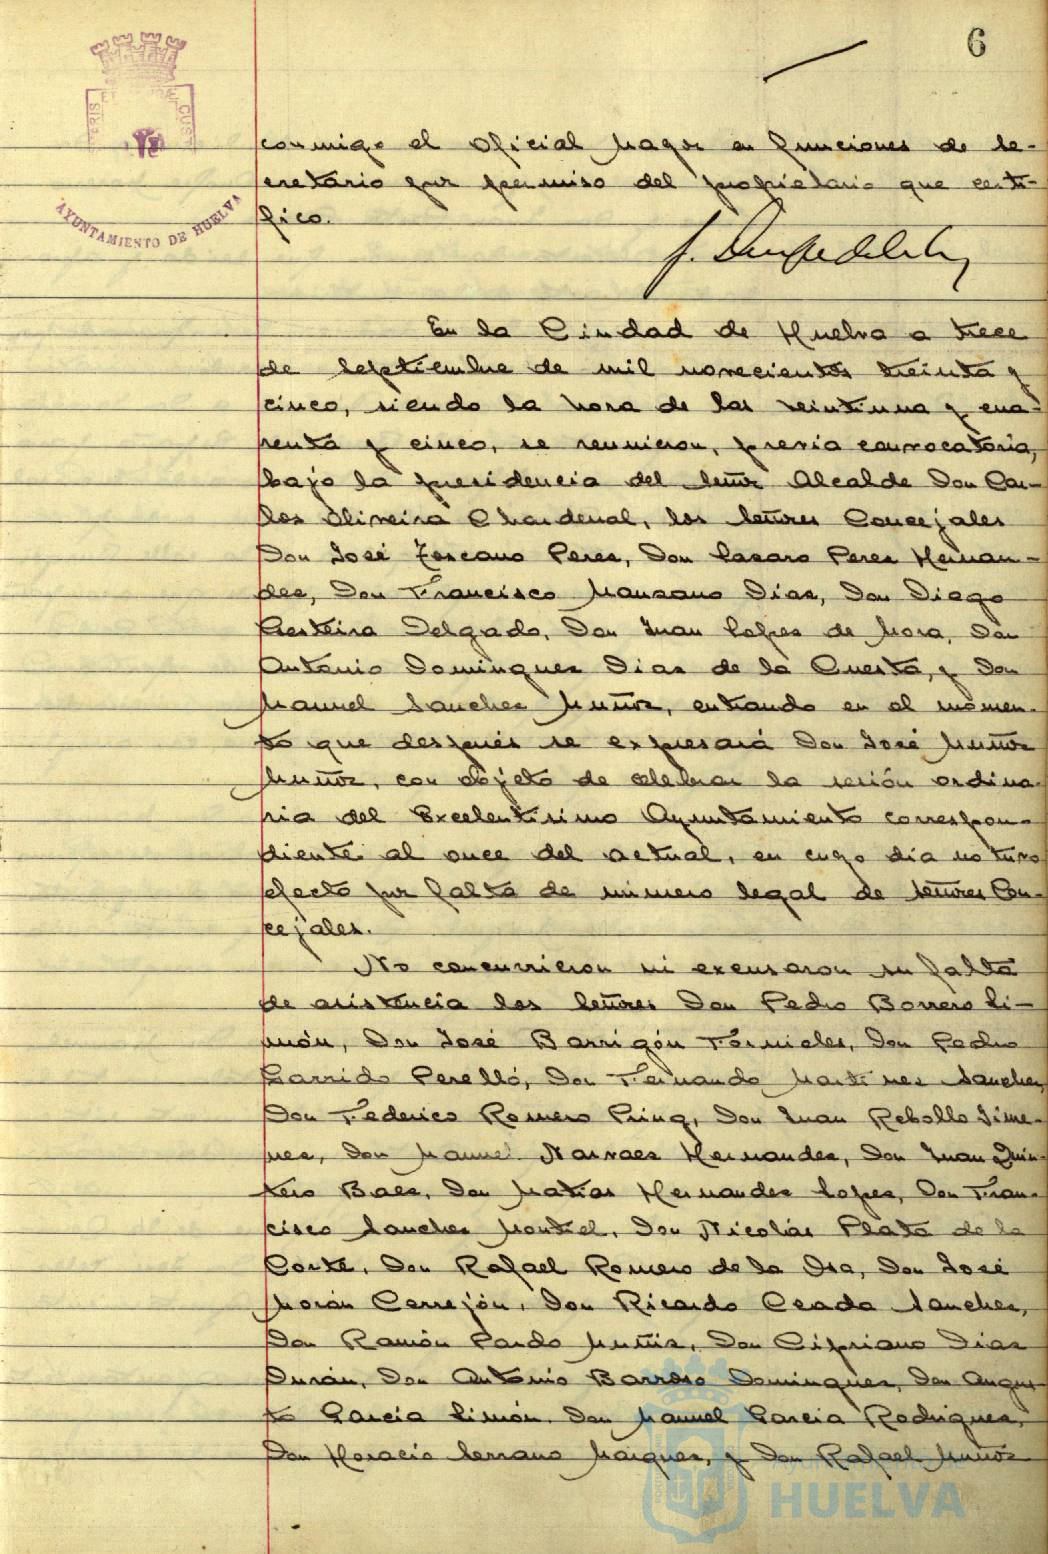 6
AYUNTAMIENTO DE HUELVA
conmigo el Oficial Mayor en funciones de Se-
cretario por permiso del propietario que certi-
fico.
En la Ciudad de Huelva a trece
de Septiembre de mil novecientos treinta y
cinco, siendo la hora de las veintiuna y cua-
renta y cinco, se reunieron, previa convocatoria,
bajo la presidencia del Señor Alcalde Don Car-
los Oliveira Chardenal, los Señores Concejales
Don José Toscano Perez, Don Lazaro Perez Hernan-
dez, Don Francisco Manzano Diaz, Don Diego
Lesteira Delgado, Don Juan Lopez de Mora, Don
Antonio Dominguez Diaz de la Cuesta, y Don
Manuel Sanchez Muñoz, entrando en el momen-
to que después se expresará Don José Muñoz
Muñoz, con objeto de celebrar la sesión ordina-
ria del Excelentisimo Ayuntamiento correspon-
diente al once del actual, en cuyo dia no tuvo
efecto por falta de número legal de Señores Con-
cejales.
No concurrieron ni excusaron su falta
de asistencia los Señores Don Pedro Borrero Li-
món, Don José Barrigón Fornieles, Don Pedro
Garrido Perelló, Don Fernando Martinez Sanchez,
Don Federico Romero Pring, Don Juan Rebollo Jime-
nez, Don Manuel Narvaez Hernandez, Don Juan Quin-
tero Baez, Don Matias Hernandez Lopez, Don Fran-
cisco Sanchez Montiel, Don Nicolás Plata de la
Corte, Don Rafael Romero de la Osa, Don José
Morán Cerrejón, Don Ricardo Ceada Sanchez,
Don Ramón Pardo Muñiz, Don Cipriano Diaz
Durán, Don Antonio Barroso Dominguez, Don Augus-
to Garcia Simón, Don Manuel Garcia Rodriguez,
Don Horacio Serrano Marquez, y Don Rafael Muñoz
HUELVA